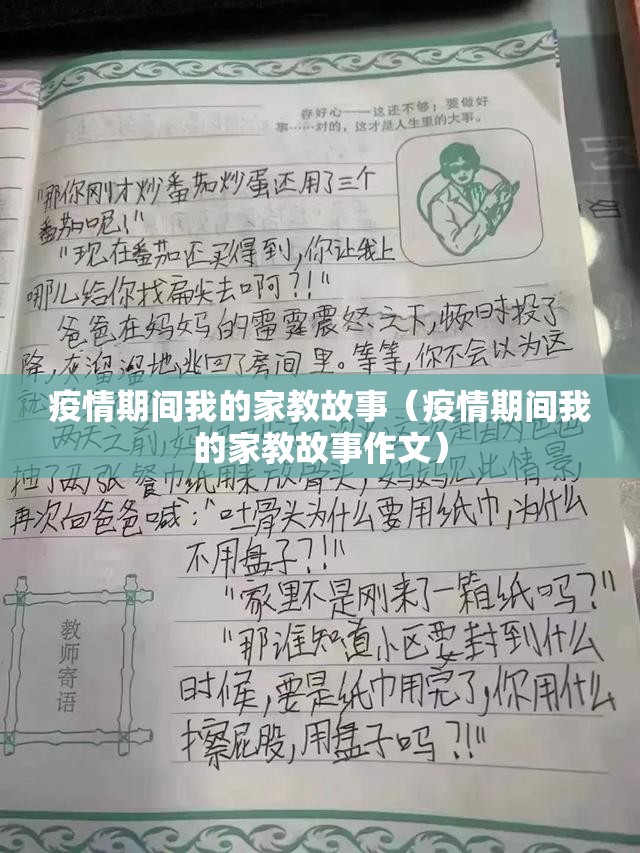 存好心——这还不够；要做好
事……对的，这才是人生里的大事。
"那你刚才炒番茄炒蛋还用了三个
番茄呢！"
"现在番茄还买得到，你让我上
哪儿给你找扁尖去啊？！！"
爸爸在妈妈的雷霆震怒之下，顿时投了
降，灰溜溜地逃回了房间里。等等，你不会以为这
就
疫情期间我的家教故事（疫情期间我
的家教故事作文）
两天之前，妈
爸爸
抽了两张餐巾纸用来放骨头，妈妈见此情景，
再次向爸爸喊："吐骨头为什么要用纸巾，为什么
不用盘子？！！"
"家里不是刚来了一箱纸吗？"
"那谁知道小区要封到什么
时候，要是纸巾用完了，你用什么
擦屁股，用盘子吗？！！"
教师寄语